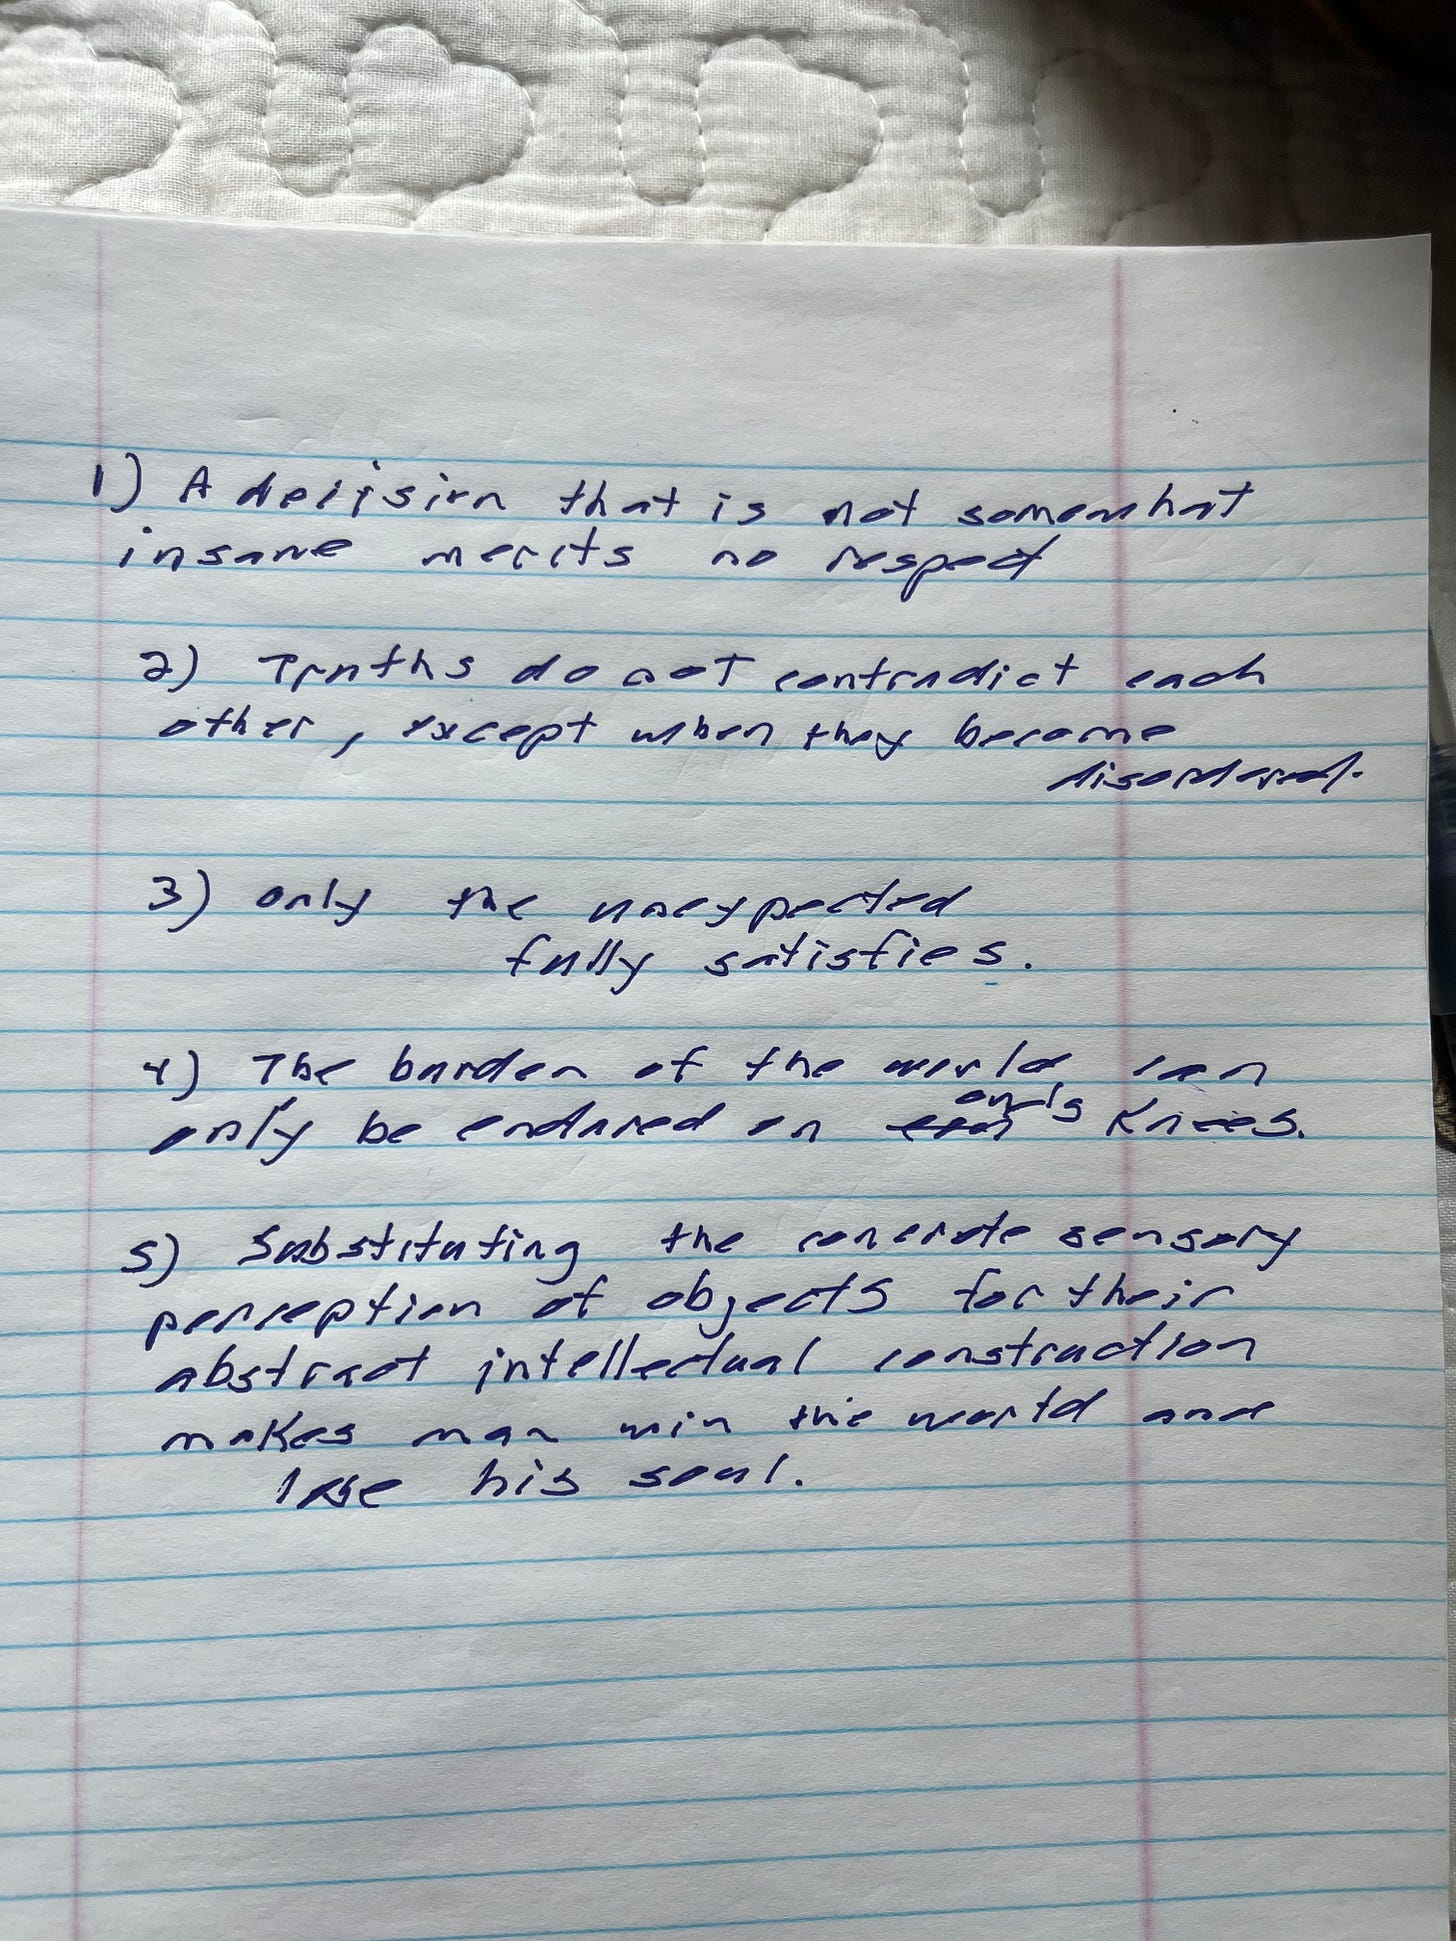 1) A decision that is not somewhat
insane merits no respect
2) Truths do not contradict each
other, except when they become
disordered.
3) only the unexpected
fully satisfies.
4) The burden of the world can
only be endured on one's knees.
5) Substituting the concrete sensory
perception of objects for their
abstract intellectual construction
makes man win the world and
lose his soul.